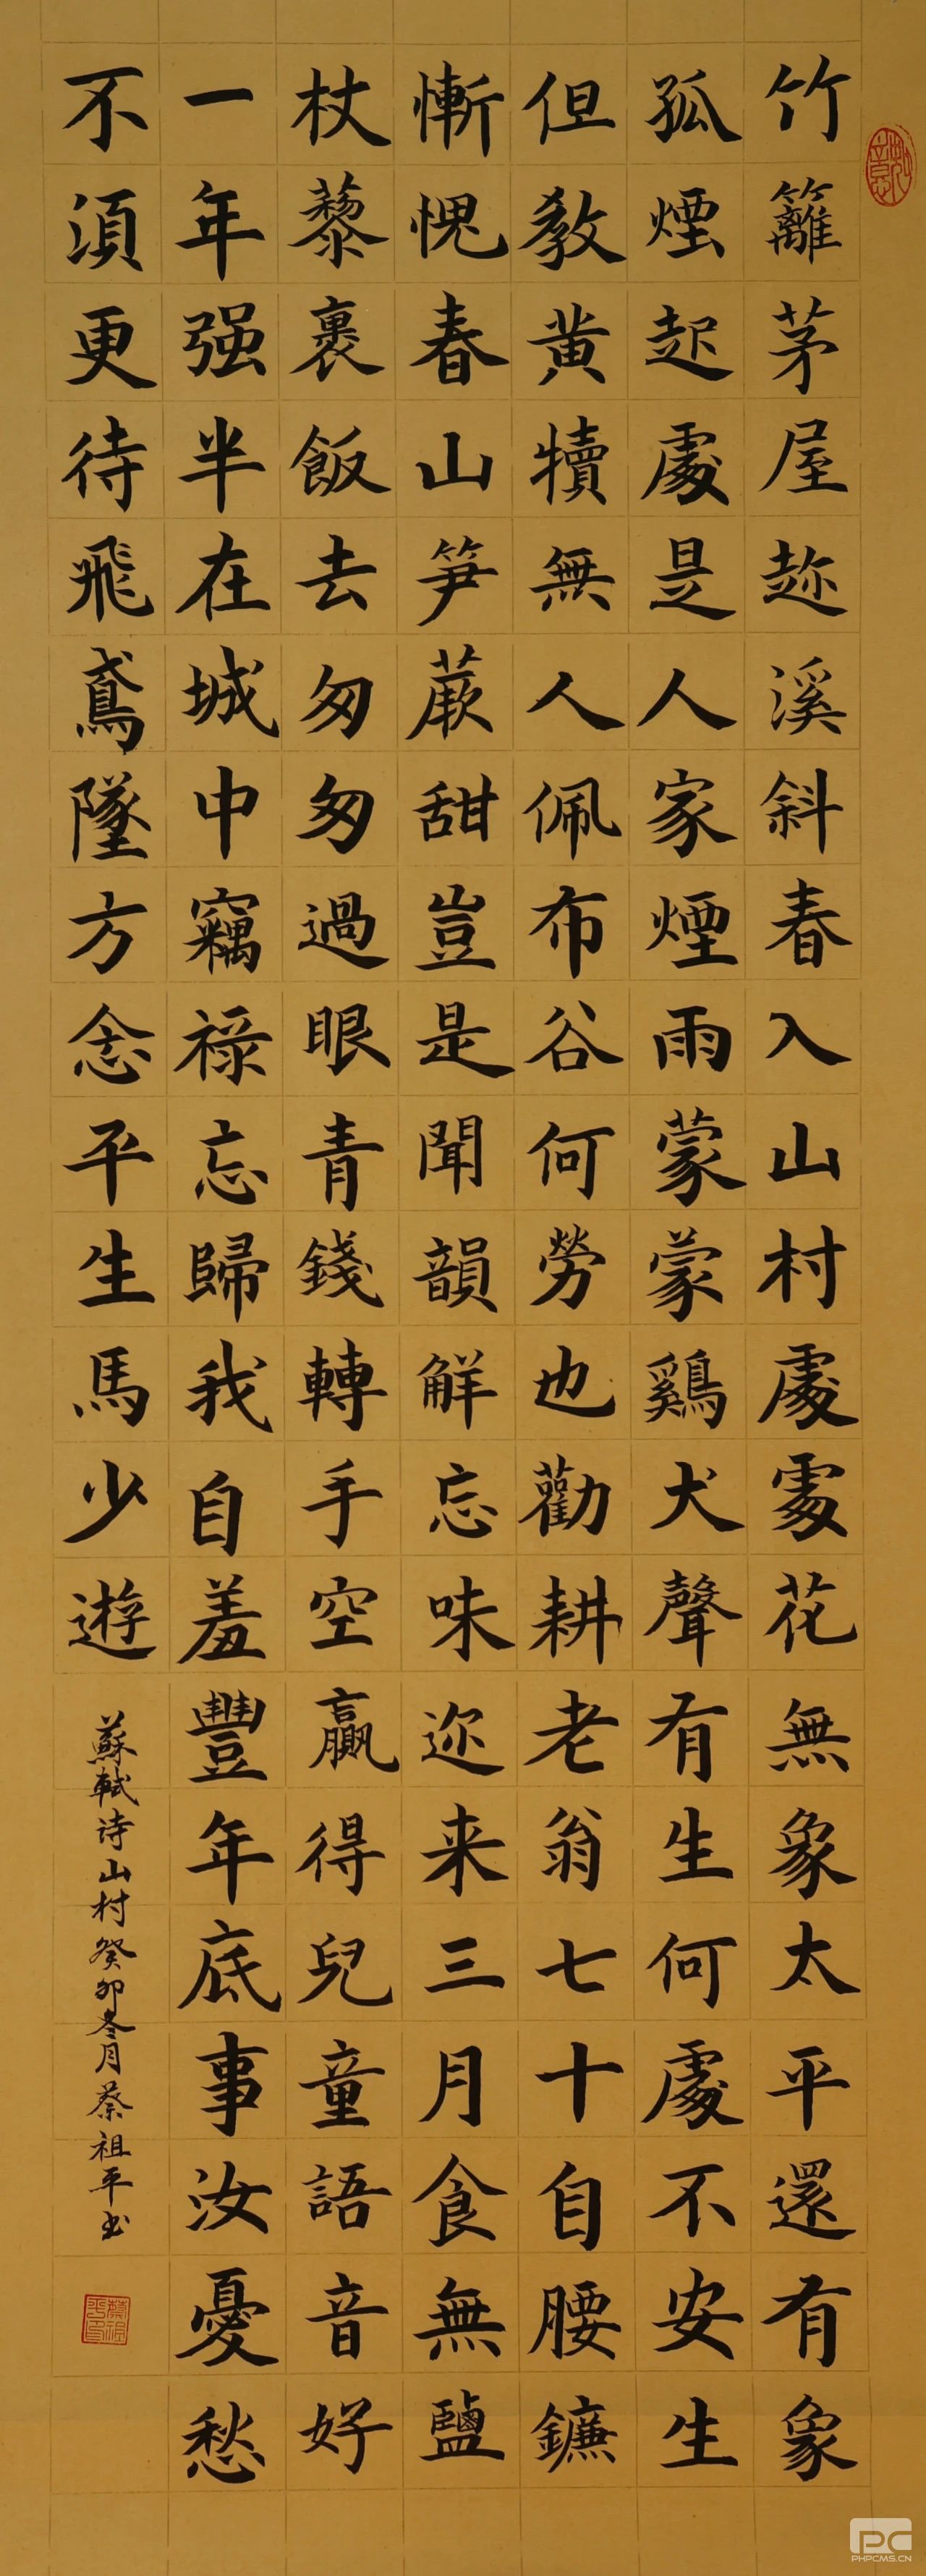 竹籬茅屋趂溪斜春入山村處處花無象太平還有象
孤煙起處是人家煙雨蒙蒙鷄犬聲有生何處不安生
但教黄犢無人佩布谷何勞也勸耕老翁七十自腰鐮
慚愧春山笋蕨甜豈是聞韻解忘味迩来三月食無鹽
杖藜裹飯去匆匆過眼青錢轉手空贏得兒童語音好
一年强半在城中竊禄忘歸我自羞豐年底事汝憂愁
不須更待飛鳶墜方念平生馬少遊
蘇軾诗山村癸卯冬月蔡祖平书
蔡祖平印
PC
PHPCMS.CN